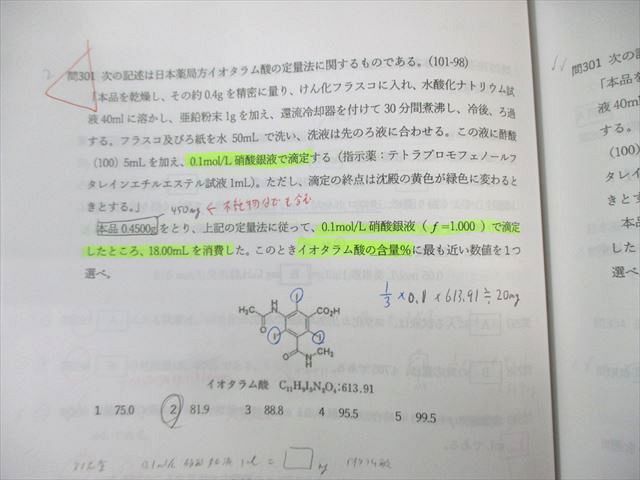 問301 次の記述は日本薬局方イオタラム酸の定量法に関するものである。(101-98)
「本品を乾燥し、その約0.4gを精密に量り、けん化フラスコに入れ、水酸化ナトリウム試
液40mlに溶かし、亜鉛粉末1gを加え、還流冷却器を付けて30分間煮沸し、冷後、ろ過
する。フラスコ及びろ紙を水50mLで洗い、洗液は先のろ液に合わせる。この液に酢酸
(100) 5mLを加え、0.1mol/L硝酸銀液で滴定する(指示薬：テトラブロモフェノールフ
タレインエチルエステル試液1mL)。ただし、滴定の終点は沈殿の黄色が緑色に変わると
きとする。」
450mg
本品0.4500gをとり、上記の定量法に従って、0.1mol/L硝酸銀液(f=1.000)で滴定
したところ、18.00mLを消費した。このときイオタラム酸の含量%に最も近い数値を1つ
選べ。
1/3 × 0.1 × 613.91 ≒ 20mg
I
H
H₃C
N
O
CO₂H
I
I
O
N
H
CH₃
イオタラム酸 C₁₁H₉I₃N₂O₄：613.91
1 75.0 2 81.9 3 88.8 4 95.5 5 99.5
問301
「本品
液40
する。
(100)
タレイ
きとす
本品
したと
選べ。